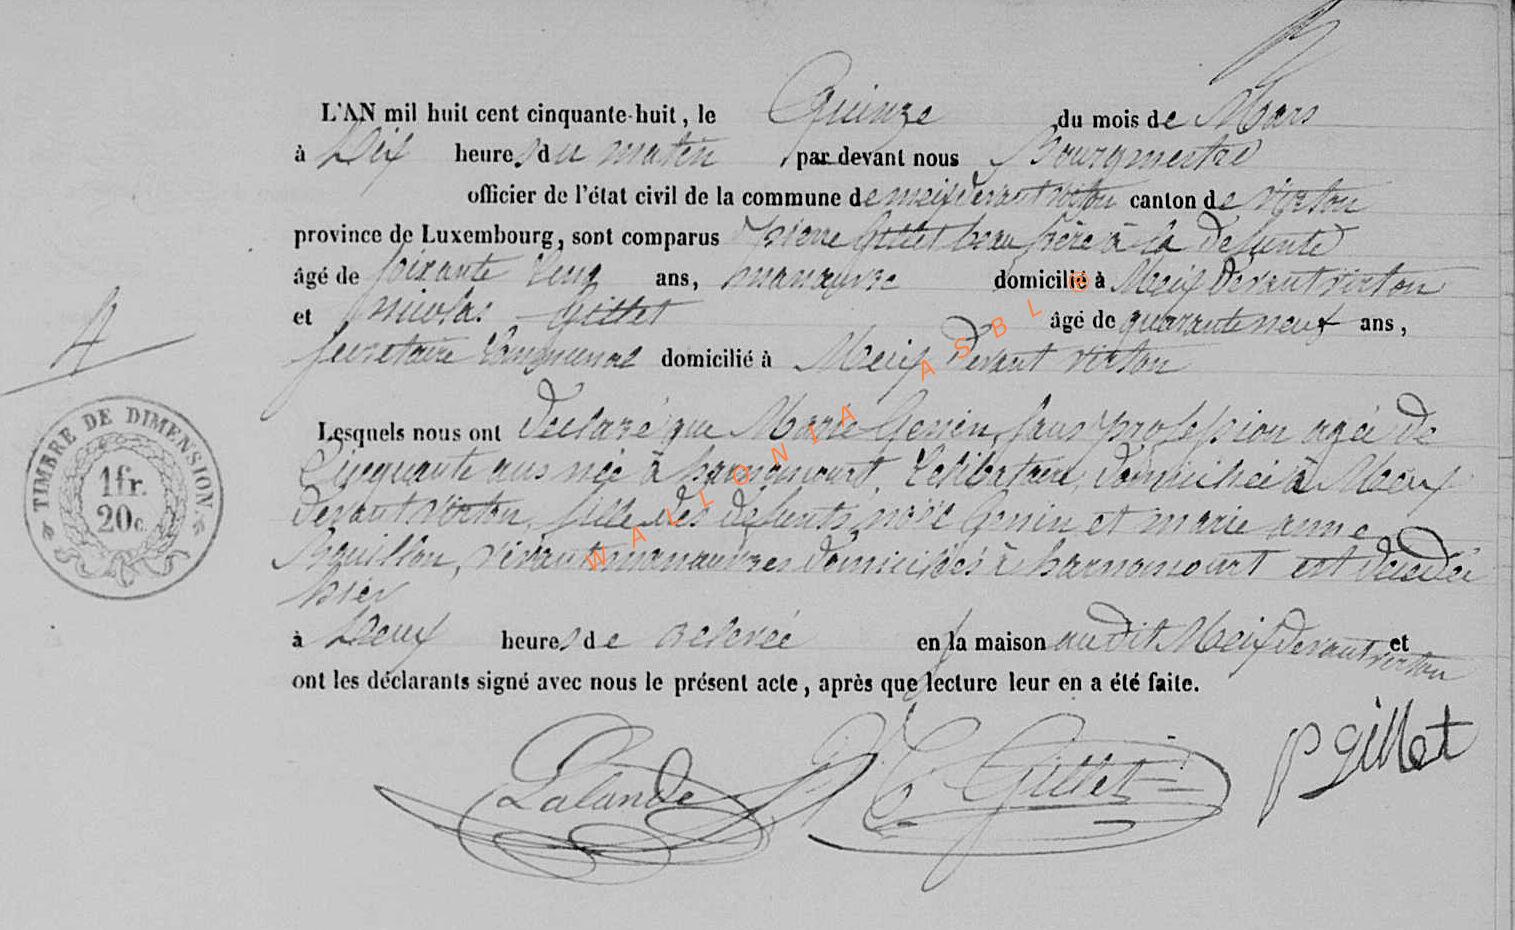 L'AN mil huit cent cinquante-huit, le Quinze du mois de Mars
à Dix heures du matin par devant nous Bourgmestre
officier de l'état civil de la commune de meix devant virton canton de virton
province de Luxembourg, sont comparus pierre Gillet beau frère à la défunte
âgé de soixante cinq ans, manœuvre domicilié à Meix devant virton
et nicolas Gillet âgé de quarante neuf ans,
secretaire Communal domicilié à Meix devant virton
Lesquels nous ont declaré que Marie Genin, sans profession agée de
Cinquante ans née à harnoncourt, Celibataire, domiciliée à Meix
devant virton, fille des defunts noël Genin et marie anne
Bouillon, vivant manœuvres domiciliés à harnoncourt est decedée
hier
à Deux heures de relevée en la maison audit Meix devant virton et
ont les déclarants signé avec nous le présent acte, après que lecture leur en a été faite.
Lalande Gillet p gillet
TIMBRE DE DIMENSION
1fr.
20c.
WALLONIA ASBL ©